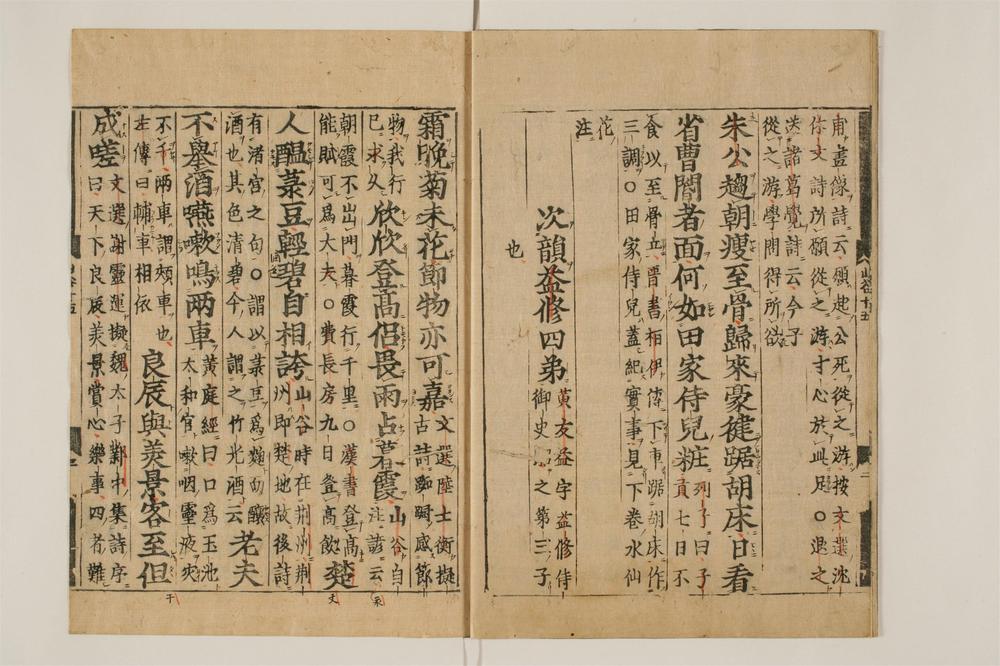 甫畫像詩云願起公死從之游按文選沈
休文詩所願從之游寸心於此足〇退之
送諸葛覺詩云今子
從之游學問得所欲
朱公趨朝瘦至骨歸來豪健踞胡床日看
省曹閣者面何如田家侍兒粧列子曰子貢七日不
食以至骨立晋書桓伊傳下車踞胡床作
三調〇田家侍兒蓋紀實事見下卷水仙
花
注
次韻益修四弟黄友益字益修侍御史昭之第三子
也
霜晚菊未花節物亦可嘉文選陸士衡擬古詩踟躕感節
物我行已永久欣欣登髙侣畏雨占暮霞山谷自注諺云
朝霞不出門暮霞行千里〇漢書登髙能賦可爲大夫〇費長房九日登髙飲楚
人醖菉豆輕碧自相誇山谷時在荆州荆州即楚地故後詩
有渚宫之句〇謂以菉豆爲麴而釀酒也其色清碧今人謂之竹光酒云老夫
不舉酒嚥嗽鳴兩車黄庭經曰口爲玉池太和官嗽咽靈液灾
不干兩車謂頰車也左傳曰輔車相依良辰與羙景客至但
成嗟文選謝靈運擬魏太子鄴中集詩序曰天下良辰羙景賞心樂事四者難